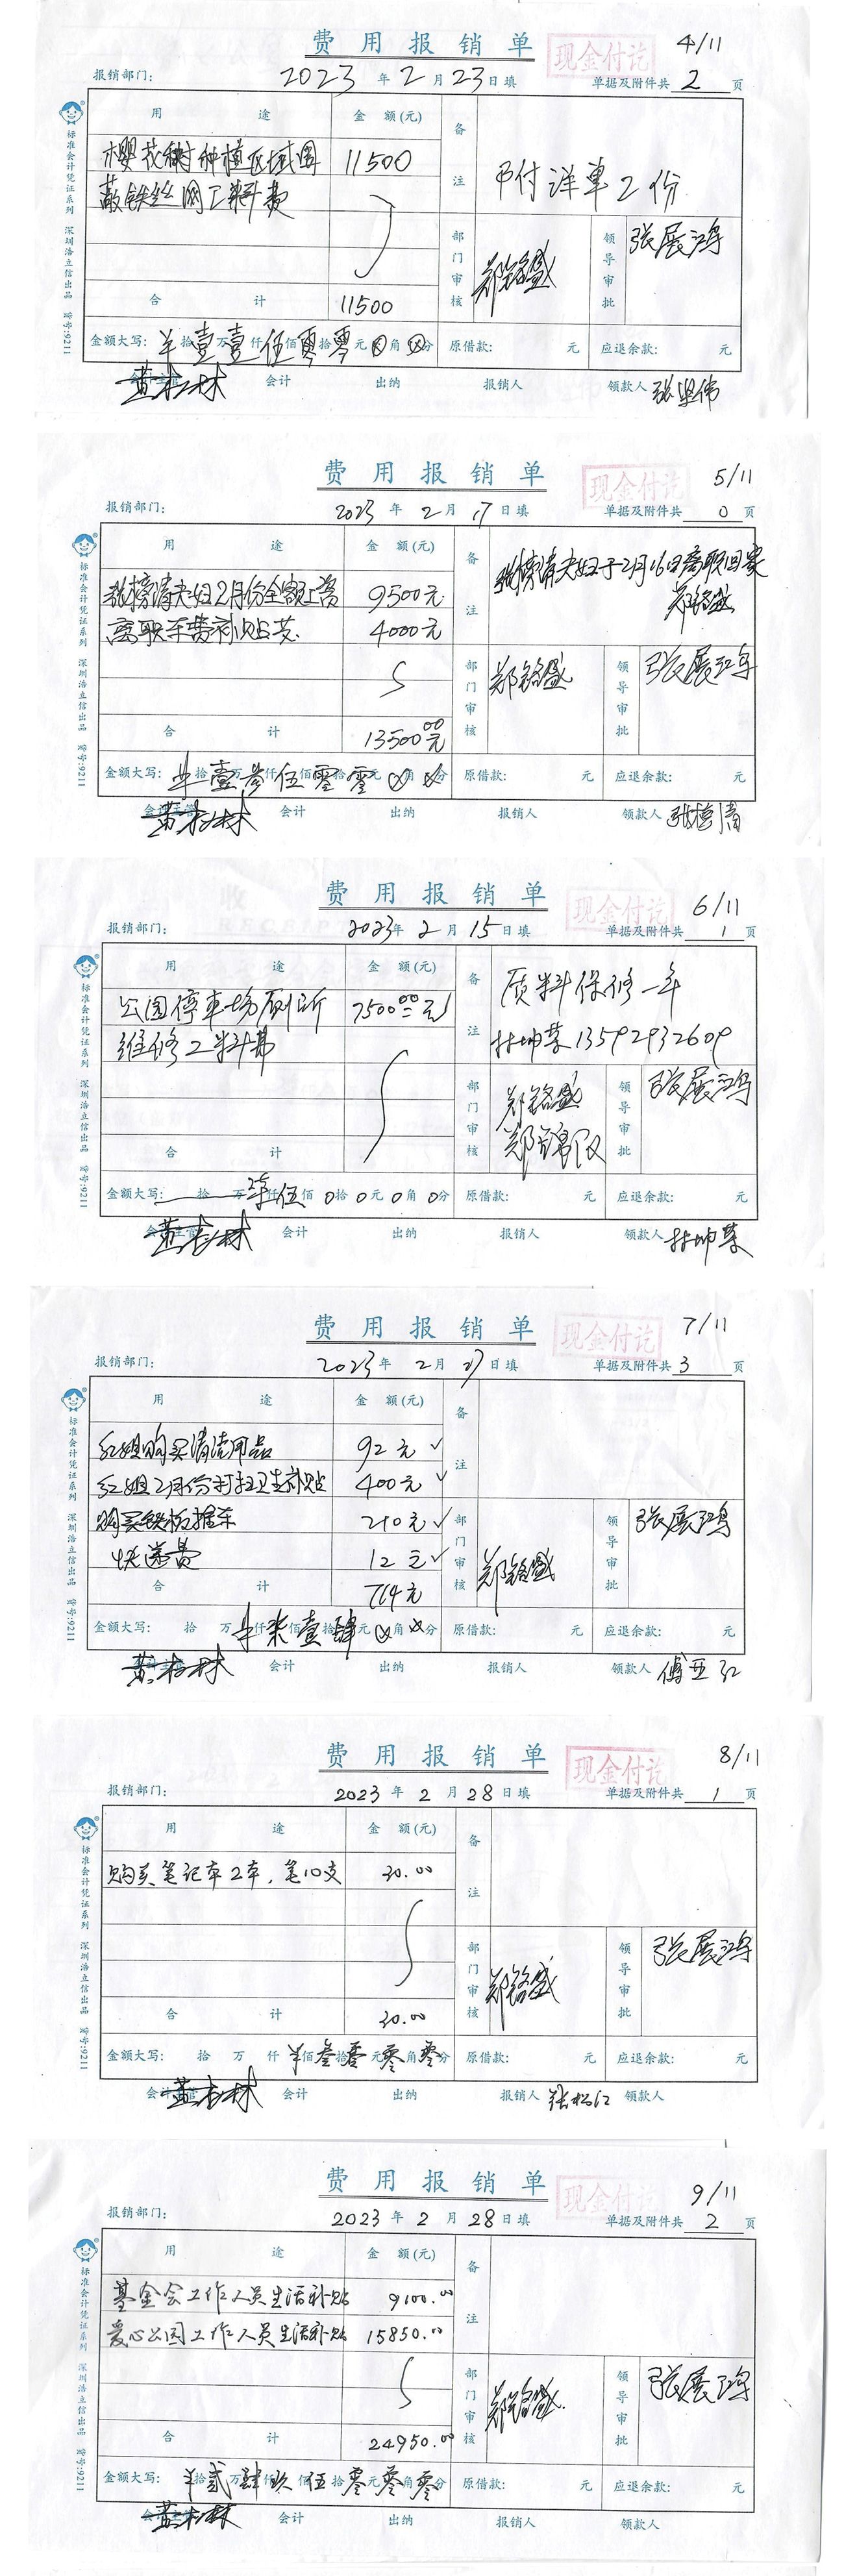 费用报销单
现金付讫
4/11
报销部门： 2023年2月23日填 单据及附件共2页
用途 金额(元) 备注
樱花树种植区域围 11500
蔽铁丝网工料费
附详单2份
部门审核 郑铭盛 领导审批 张展鸿
合计 11500
金额大写： 拾壹万壹仟伍佰零拾零元⊗角⊗分 原借款： 元 应退余款： 元
会计主管 会计 出纳 报销人 领款人 张坚伟
标准会计凭证系列 深圳浩立信出品 货号:9211
费用报销单
现金付讫
5/11
报销部门： 2023年2月17日填 单据及附件共0页
用途 金额(元) 备注
张榜清夫妇2月份全额工资 9500元
离职车费补贴款 4000元
张榜清夫妇于2月16日离职回家
郑铭盛
部门审核 郑铭盛 领导审批 张展鸿
合计 13500.00元
金额大写： 拾壹万叁仟伍佰零拾零元⊗角⊗分 原借款： 元 应退余款： 元
会计主管 会计 出纳 报销人 领款人 张榜清
标准会计凭证系列 深圳浩立信出品 货号:9211
费用报销单
现金付讫
6/11
报销部门： 2023年2月15日填 单据及附件共1页
用途 金额(元) 备注
公园停车场厕所 7500.00元
维修工料费
质料保修一年
林坤荣13592932609
部门审核 郑铭盛 领导审批 张展鸿
合计
金额大写： 拾 万柒仟伍佰0拾0元0角0分 原借款： 元 应退余款： 元
会计主管 会计 出纳 报销人 领款人 林坤荣
标准会计凭证系列 深圳浩立信出品 货号:9211
费用报销单
现金付讫
7/11
报销部门： 2023年2月27日填 单据及附件共3页
用途 金额(元) 备注
红姐购买清洁用品 92元✓
红姐2月份打扫卫生补贴 400元✓
购买铁板推车 210元✓
快递费 12元✓
部门审核 郑铭盛 领导审批 张展鸿
合计 714元
金额大写： 拾 万 仟柒佰壹拾肆元⊗角⊗分 原借款： 元 应退余款： 元
会计主管 会计 出纳 报销人 领款人 傅亚红
标准会计凭证系列 深圳浩立信出品 货号:9211
费用报销单
现金付讫
8/11
报销部门： 2023年2月28日填 单据及附件共1页
用途 金额(元) 备注
购买笔记本2本，笔10支 30.00
部门审核 郑铭盛 领导审批 张展鸿
合计 30.00
金额大写： 拾 万 仟 佰叁拾零元零角零分 原借款： 元 应退余款： 元
会计主管 会计 出纳 报销人 张松江 领款人
标准会计凭证系列 深圳浩立信出品 货号:9211
费用报销单
现金付讫
9/11
报销部门： 2023年2月28日填 单据及附件共2页
用途 金额(元) 备注
基金会工作人员生活补贴 9100.00
爱心公园工作人员生活补贴 15850.00
部门审核 郑铭盛 领导审批 张展鸿
合计 24950.00
金额大写： 拾贰万肆仟玖佰伍拾零元零角零分 原借款： 元 应退余款： 元
会计主管 会计 出纳 报销人 领款人
标准会计凭证系列 深圳浩立信出品 货号:9211